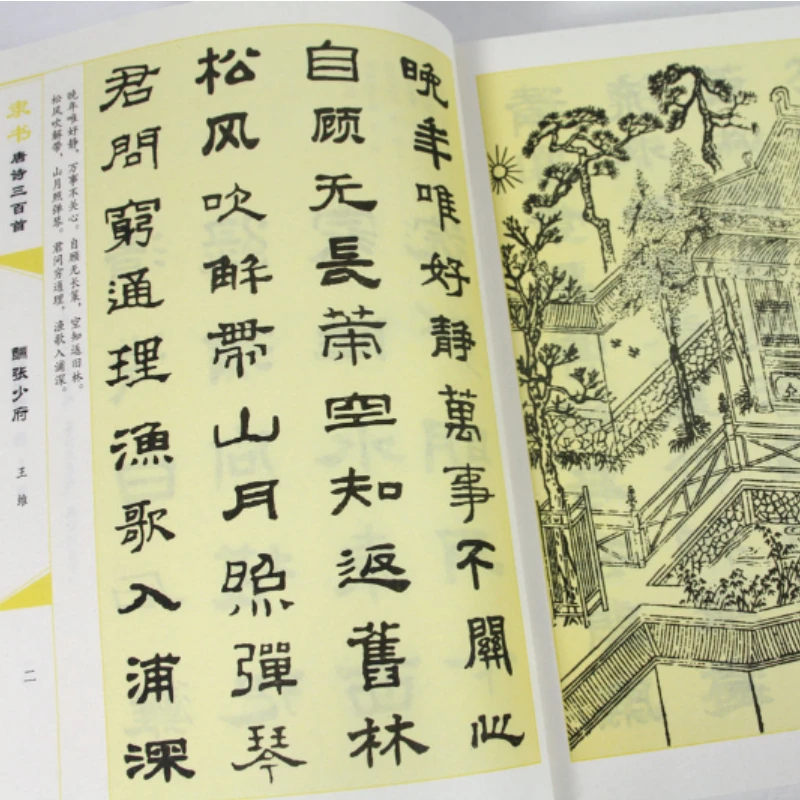 晚年唯好静萬事不關心
自顾无長策空知返舊林
松风吹解帶山月照彈琴
君問窮通理漁歌入浦深
晚年唯好静，万事不关心。自顾无长策，空知返旧林。
松风吹解带，山月照弹琴。君问穷通理，渔歌入浦深。
隶书 唐诗三百首
酬张少府 王维
二